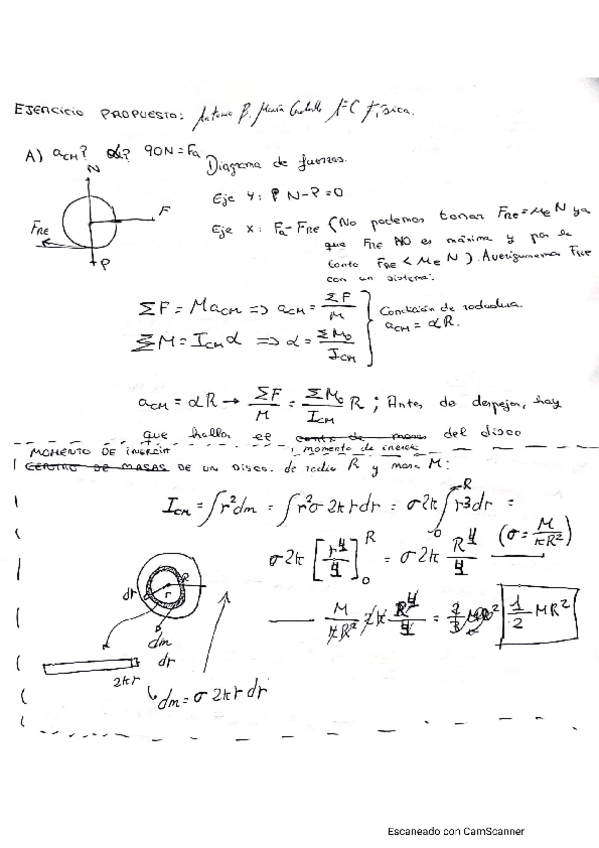 EJERCICIO PROPUESTO: Antonio B. 1ºC Física.
A) aCM? α? 90N=Fa
Diagrama de fuerzas.
N
F
FRE
P
Eje Y: N-P=0
Eje X: Fa-FRE (No podemos tomar FRE=μeN ya
que FRE NO es máxima y por lo
tanto FRE<μeN). Averiguamos FRE
con un sistema:
ΣF = MaCM => aCM = ΣF/M
ΣM = ICMα => α = ΣM0/ICM
Condición de rodadura.
aCM = αR.
aCM = αR → ΣF/M = ΣM0/ICM R ; Antes de despejar, hay
que hallar el momento de inercia del disco
MOMENTO DE INERCIA
DE UN DISCO. de radio R y masa M:
ICM = ∫r²dm = ∫r²σ 2πrdr = σ2π∫₀ᴿ r3dr =
σ2π [r⁴/4]₀ᴿ = σ2π R⁴/4 (σ = M/πR²)
M/πR² 2π R⁴/4 = 1/2 MR²
R
r
dr
dm
dr
2πr
dm = σ2πr dr
Escaneado con CamScanner